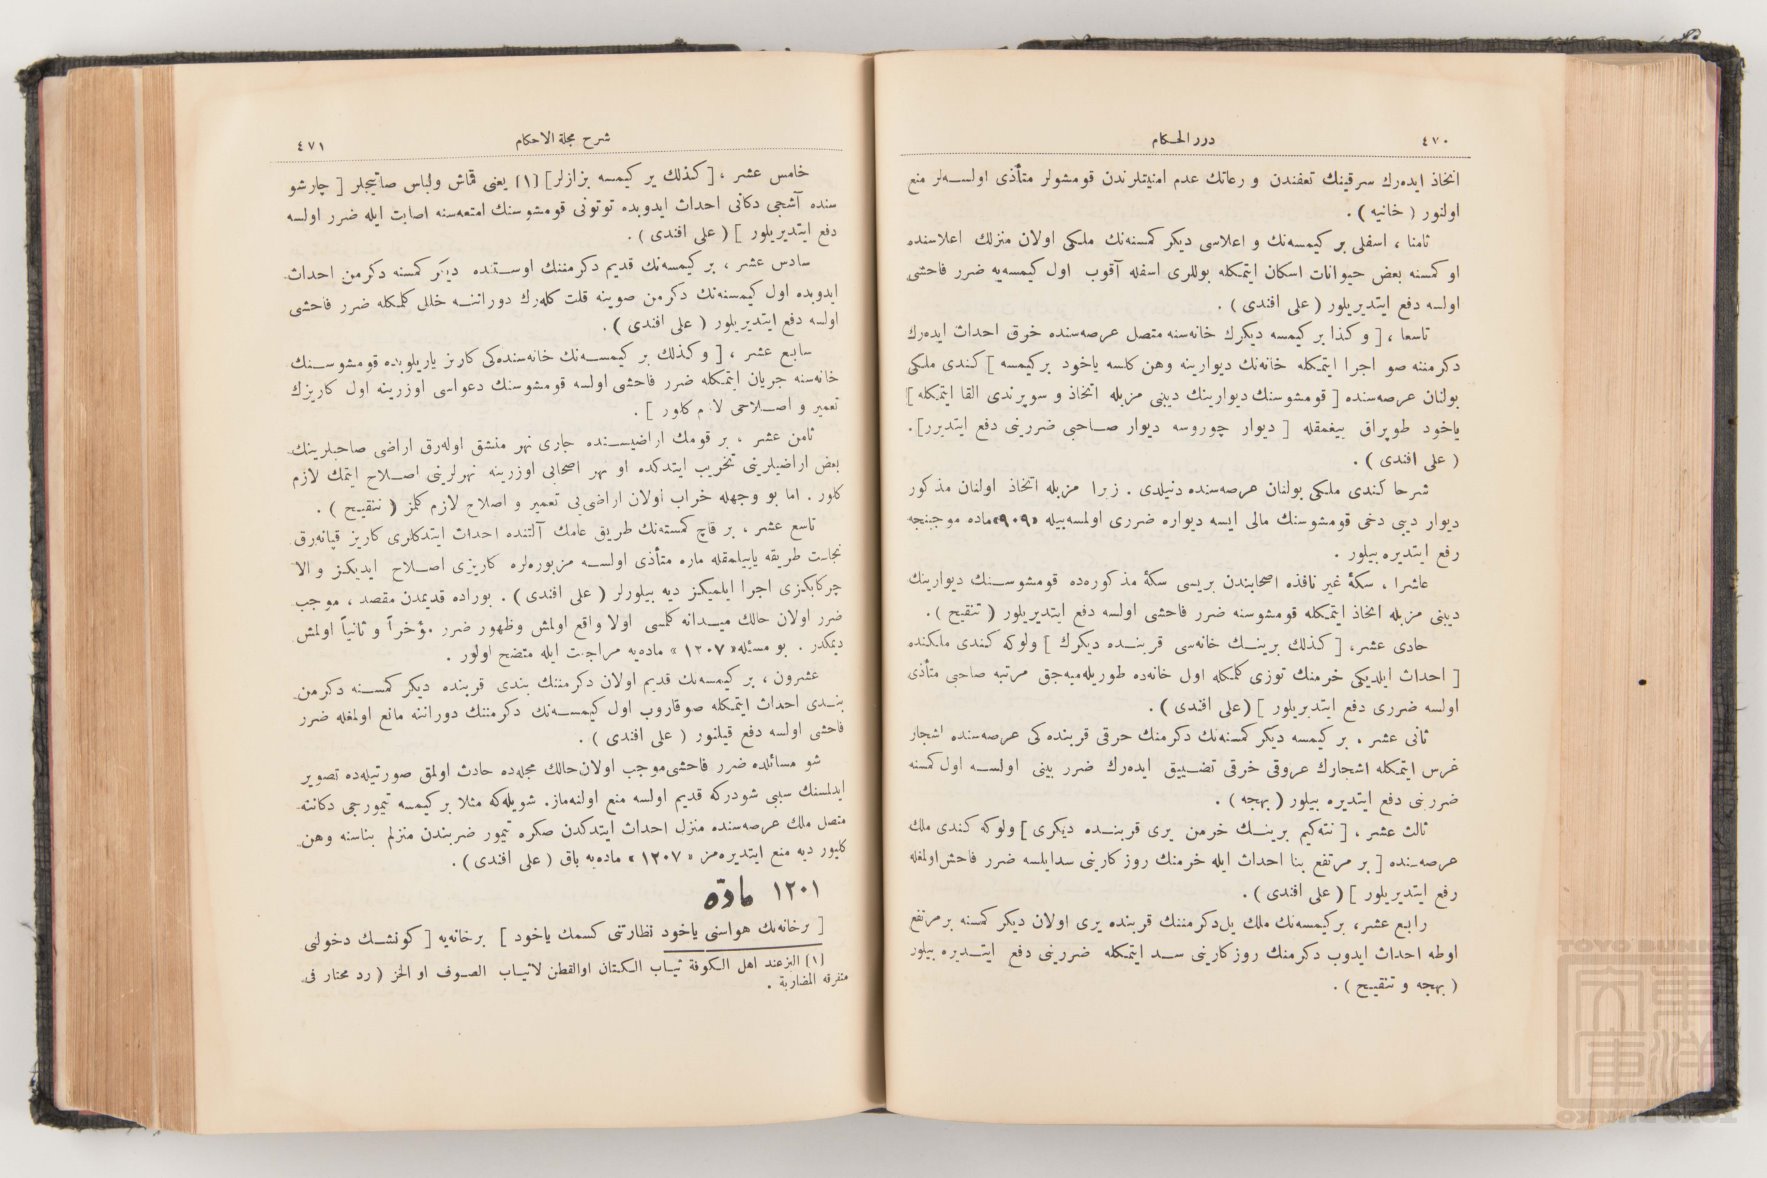 ٤٧٠
درر الحكام
اتخاذ ايده‌رك سرقينك تعفندن و رعاتك عدم امنيتلرندن قومشولر متأذى اولسه‌لر منع
اولنور ( خانيه ) .
ثامنا ، اسفلى بر كيمسه‌نك و اعلاسى ديكر كمسنه‌نك ملكى اولان منزلك اعلاسنده
او كمسنه بعض حيوانات اسكان ايتمكله بوللرى اسفله آقوب اول كيمسه‌يه ضرر فاحشى
اولسه دفع ايتديريلور ( على افندى ) .
تاسعا ، [ و كذا بر كيمسه ديكرك خانه‌سنه متصل عرصه‌سنده خرق احداث ايده‌رك
دكرمننه صو اجرا ايتمكله خانه‌نك ديوارينه وهن كلسه ياخود بر كيمسه ] كندى ملكى
بولنان عرصه‌سنده [ قومشوسنك ديوارينك ديبنى مزبله اتخاذ و سوپرندى القا ايتمكله ]
ياخود طوپراق ييغمقله [ ديوار چوروسه ديوار صاحبى ضررينى دفع ايتديرر ] .
( على افندى ) .
شرحا كندى ملكى بولنان عرصه‌سنده دنيلدى . زيرا مزبله اتخاذ اولنان مذكور
ديوار ديبى دخى قومشوسنك مالى ايسه ديواره ضررى اولمسه‌بيله «٩٠٩» ماده موجبنجه
رفع ايتديره بيلور .
عاشرا ، سكهٔ غير نافذه اصحابندن بريسى سكهٔ مذكوره‌ده قومشوسنك ديوارينك
ديبنى مزبله اتخاذ ايتمكله قومشوسنه ضرر فاحشى اولسه دفع ايتديريلور ( تنقيح ) .
حادى عشر ، [ كذلك برينك خانه‌سى قربنده ديكرك ] ولوكه كندى ملكنده
[ احداث ايلديكى خرمنك توزى كلمكله اول خانه‌ده طوريله‌ميه‌جق مرتبه صاحبى متأذى
اولسه ضررى دفع ايتديريلور ] ( على افندى ) .
ثانى عشر ، بر كيمسه ديكر كمسنه‌نك دكرمنك حرقى قربنده كى عرصه‌سنده اشجار
غرس ايتمكله اشجارك عروقى خرقى تضييق ايده‌رك ضرر بينى اولسه اول كمسنه
ضررينى دفع ايتديره بيلور ( بهجه ) .
ثالث عشر ، [ نته‌كيم برينك خرمن يرى قربنده ديكرى ] ولوكه كندى ملك
عرصه‌سنده [ بر مرتفع بنا احداث ايله خرمنك روزكارينى سدايلسه ضرر فاحش اولمغله
رفع ايتديريلور ] ( على افندى ) .
رابع عشر ، بر كيمسه‌نك ملك يل دكرمننك قربنده يرى اولان ديكر كمسنه بر مرتفع
اوطه احداث ايدوب دكرمنك روزكارينى سد ايتمكله ضررينى دفع ايتديره بيلور
( بهجه و تنقيح ) .
شرح مجلة الاحكام
٤٧١
خامس عشر ، [ كذلك بر كيمسه بزازلر ] [١] يعنى قماش ولباس صاتيجيلر [ چارشو
سنده آشجى دكانى احداث ايدوبده توتونى قومشوسنك امتعه‌سنه اصابت ايله ضرر اولسه
دفع ايتديريلور ] ( على افندى ) .
سادس عشر ، بر كيمسه‌نك قديم دكرمننك اوستنده ديكر كمسنه دكرمن احداث
ايدوبده اول كيمسنه‌نك دكرمن صوينه قلت كله‌رك دوراننه خللى كلمكله ضرر فاحشى
اولسه دفع ايتديريلور ( على افندى ) .
سابع عشر ، [ و كذلك بر كيمسه‌نك خانه‌سنده‌كى كاريز ياريلوبده قومشوسنك
خانه‌سنه جريان ايتمكله ضرر فاحشى اولسه قومشوسنك دعواسى اوزرينه اول كاريزك
تعمير و اصلاحى لازم كلور ] .
ثامن عشر ، بر قومك اراضيسنده جارى نهر منشق اوله‌رق اراضى صاحبلرينك
بعض اراضيلرينى تخريب ايتدكده او نهر اصحابى اوزرينه نهرلرينى اصلاح ايتمك لازم
كلور . اما بو وجهله خراب اولان اراضى‌يى تعمير و اصلاح لازم كلمز ( تنقيح ) .
تاسع عشر ، بر قاچ كمسنه‌نك طريق عامك آلتنده احداث ايتدكلرى كاريز قپانه‌رق
نجاست طريقه ياييلمقله ماره متأذى اولسه مزبوره‌لره كاريزى اصلاح ايديكز و الا
چركابكزى اجرا ايلميكز ديه بيلورلر ( على افندى ) . بوراده قديمدن مقصد ، موجب
ضرر اولان حالك ميدانه كلمسى اولا واقع اولمش وظهور ضرر مؤخراً و ثانياً اولمش
ديمكدر . بو مسئله «١٢٠٧» ماده‌يه مراجعت ايله متضح اولور .
عشرون ، بر كيمسه‌نك قديم اولان دكرمننك بندى قربنده ديكر كمسنه دكرمن
بندى احداث ايتمكله صو قاروب اول كيمسه‌نك دكرمننك دوراننه مانع اولمغله ضرر
فاحشى اولسه دفع قيلنور ( على افندى ) .
شو مسائلده ضرر فاحشى موجب اولان حالك مجله‌ده حادث اولمق صورتيله‌ده تصوير
ايدلمسنك سببى شودركه قديم اولسه منع اولنه‌ماز . شويله‌كه مثلا بر كيمسه تيمورجى دكاننه
متصل ملك عرصه‌سنده منزل احداث ايتدكدن صكره تيمور ضربندن منزلم بناسنه وهن
كليور ديه منع ايتديره‌مز «١٢٠٧» ماده‌يه باق ( على افندى ) .
١٢٠١ مادّه
[ بر خانه‌نك هواسنى ياخود نظارتنى كسمك ياخود ] بر خانه‌يه [ كونشك دخولنى
[١] البز عند اهل الكوفة ثياب الكتان او القطن لاثياب الصوف او الخز ( رد محتار فى
متفرقه المضاربة .
TOYO BUNKO
東洋文庫